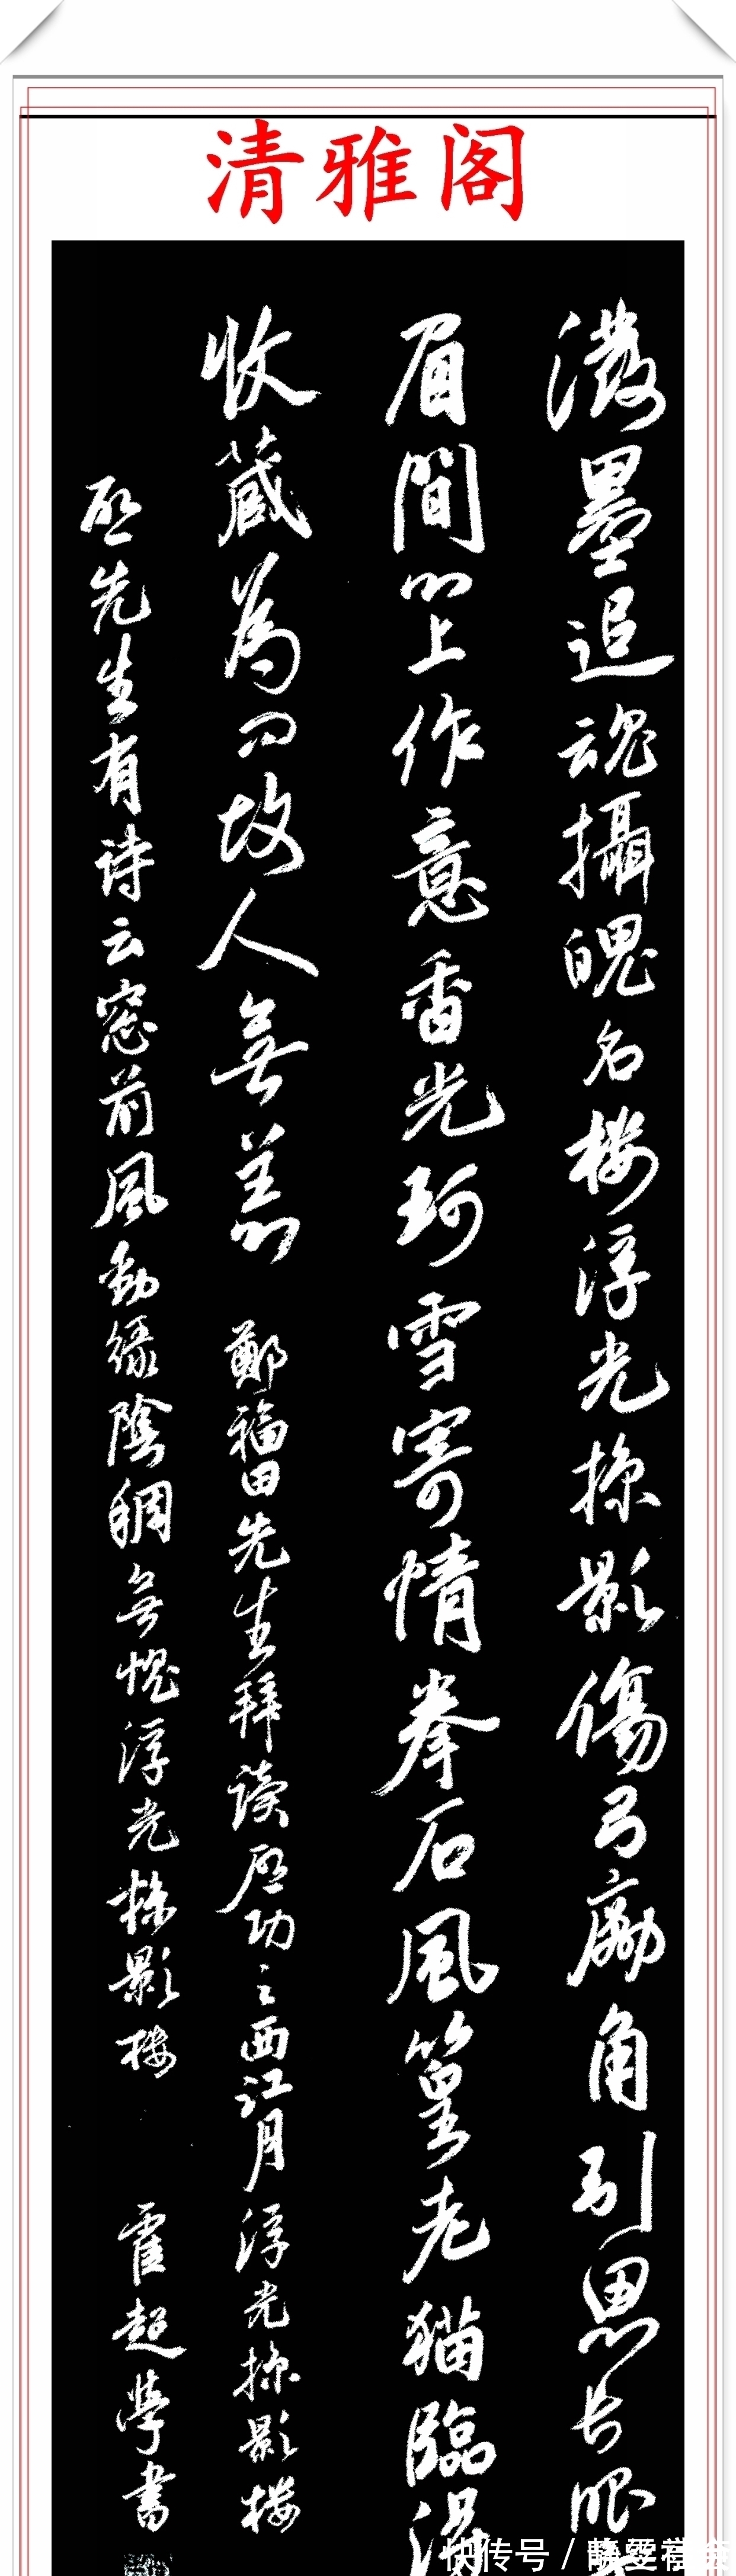 清雅阁
潑墨追魂攝魄名楼浮光掠影傷弓勵角引思长眼
眉間心上作意香光珂雪寄情拳石風篁老猫臨
收藏為口故人無恙 鄭福田先生拜读启功之西江月浮光掠影楼
启先生有诗云窓前風動緑陰稠無愧浮光掠影楼 霍超學書
快传号 /